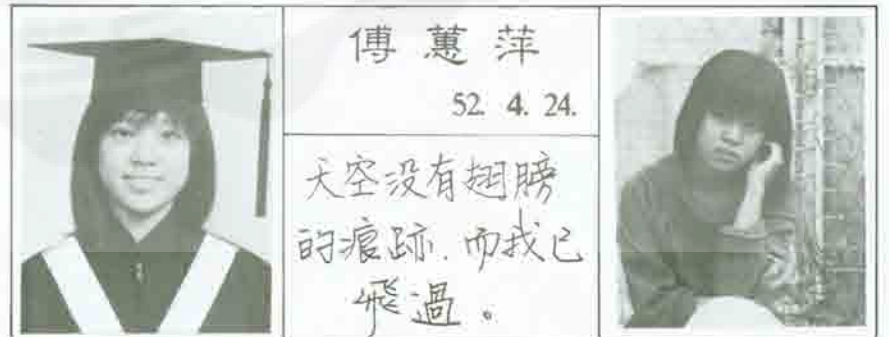 傅蕙萍
52. 4. 24.
天空没有翅膀
的痕跡.而我已
飛過。